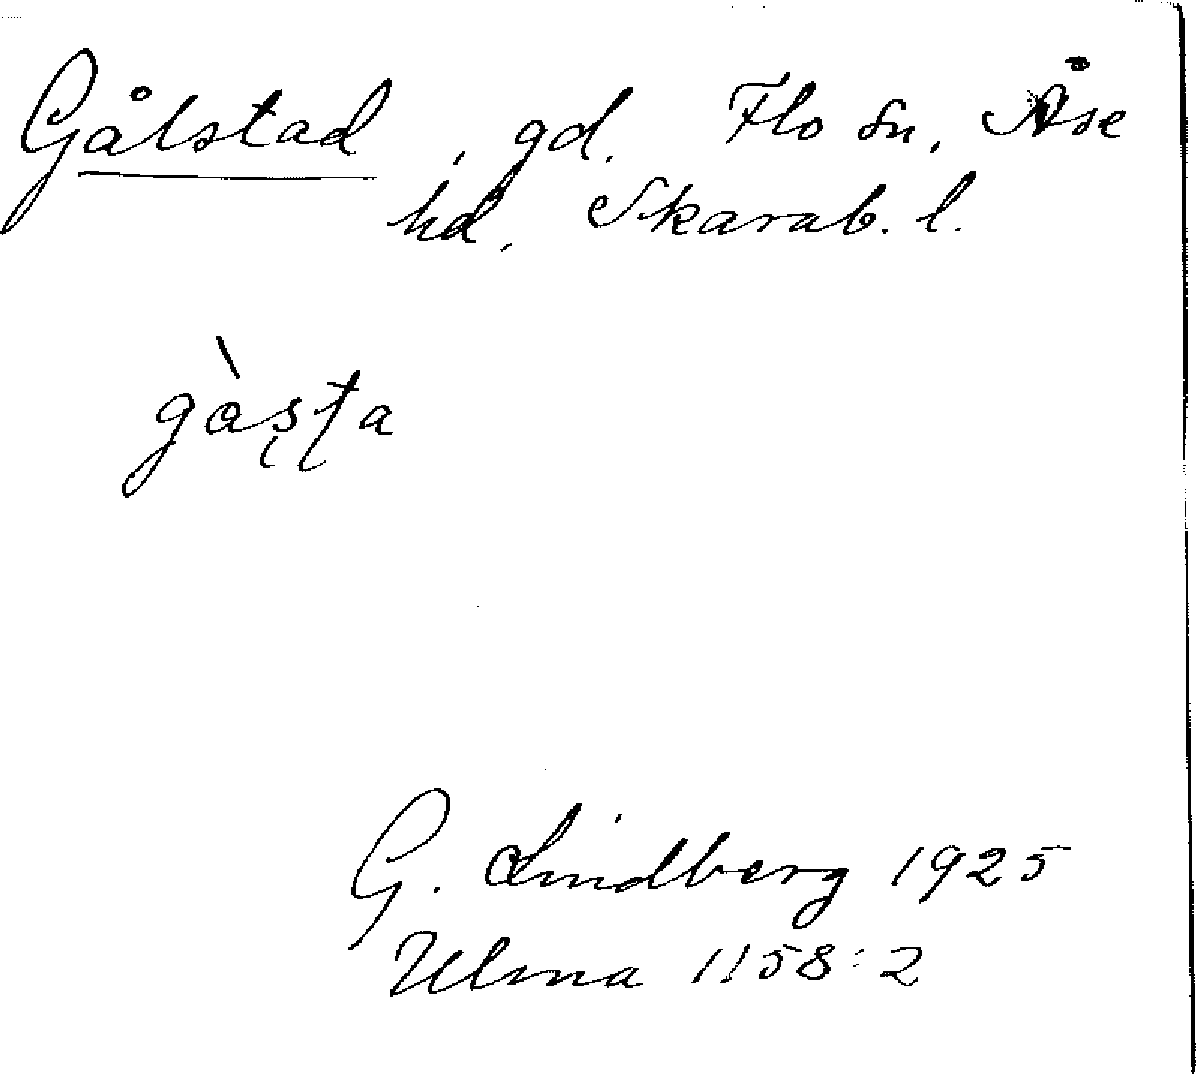 Gålstad, gd. Flo sn, Åse
hd, Skarab. l.
gàʂʈa
G. Lindberg 1925
Ulma 1158:2